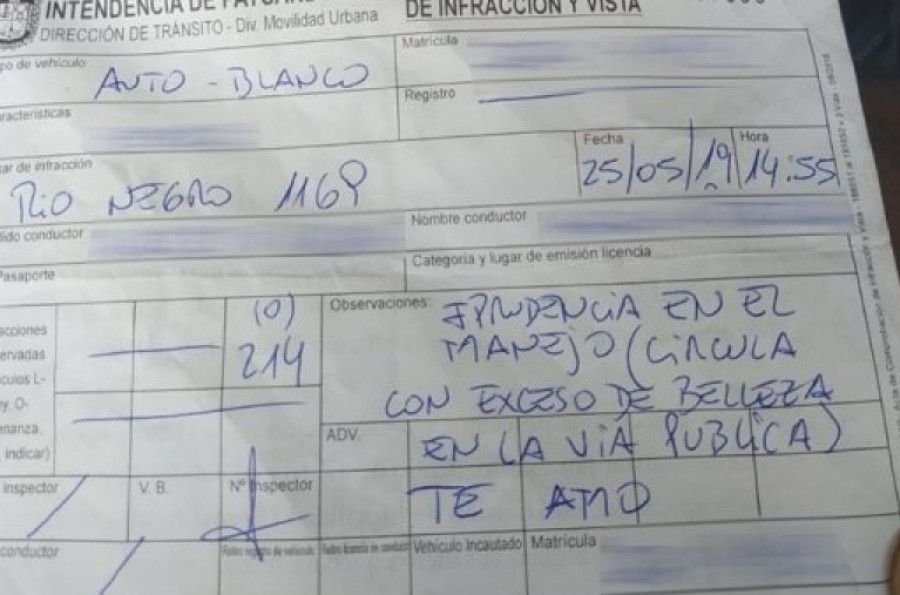 INTENDENCIA DE
DE INFRACCIÓN Y VISTA
DIRECCIÓN DE TRÁNSITO - Div. Movilidad Urbana
po de vehículo
AUTO - BLANCO
Matrícula
racterísticas
Registro
ar de infracción
RIO NEGRO 1169
Fecha
25/05/19
Hora
14:55
lido conductor
Nombre conductor
Pasaporte
Categoria y lugar de emisión licencia
acciones
ervadas
culos L-
y. O-
nanza.
indicar)
(0)
214
Observaciones:
IPRUDENCIA EN EL
MANEJO (CIRCULA
CON EXCESO DE BELLEZA
ADV.
EN LA VIA PUBLICA)
TE AMO
inspector
V. B.
Nº Inspector
conductor
Vehículo Incautado
Matrícula